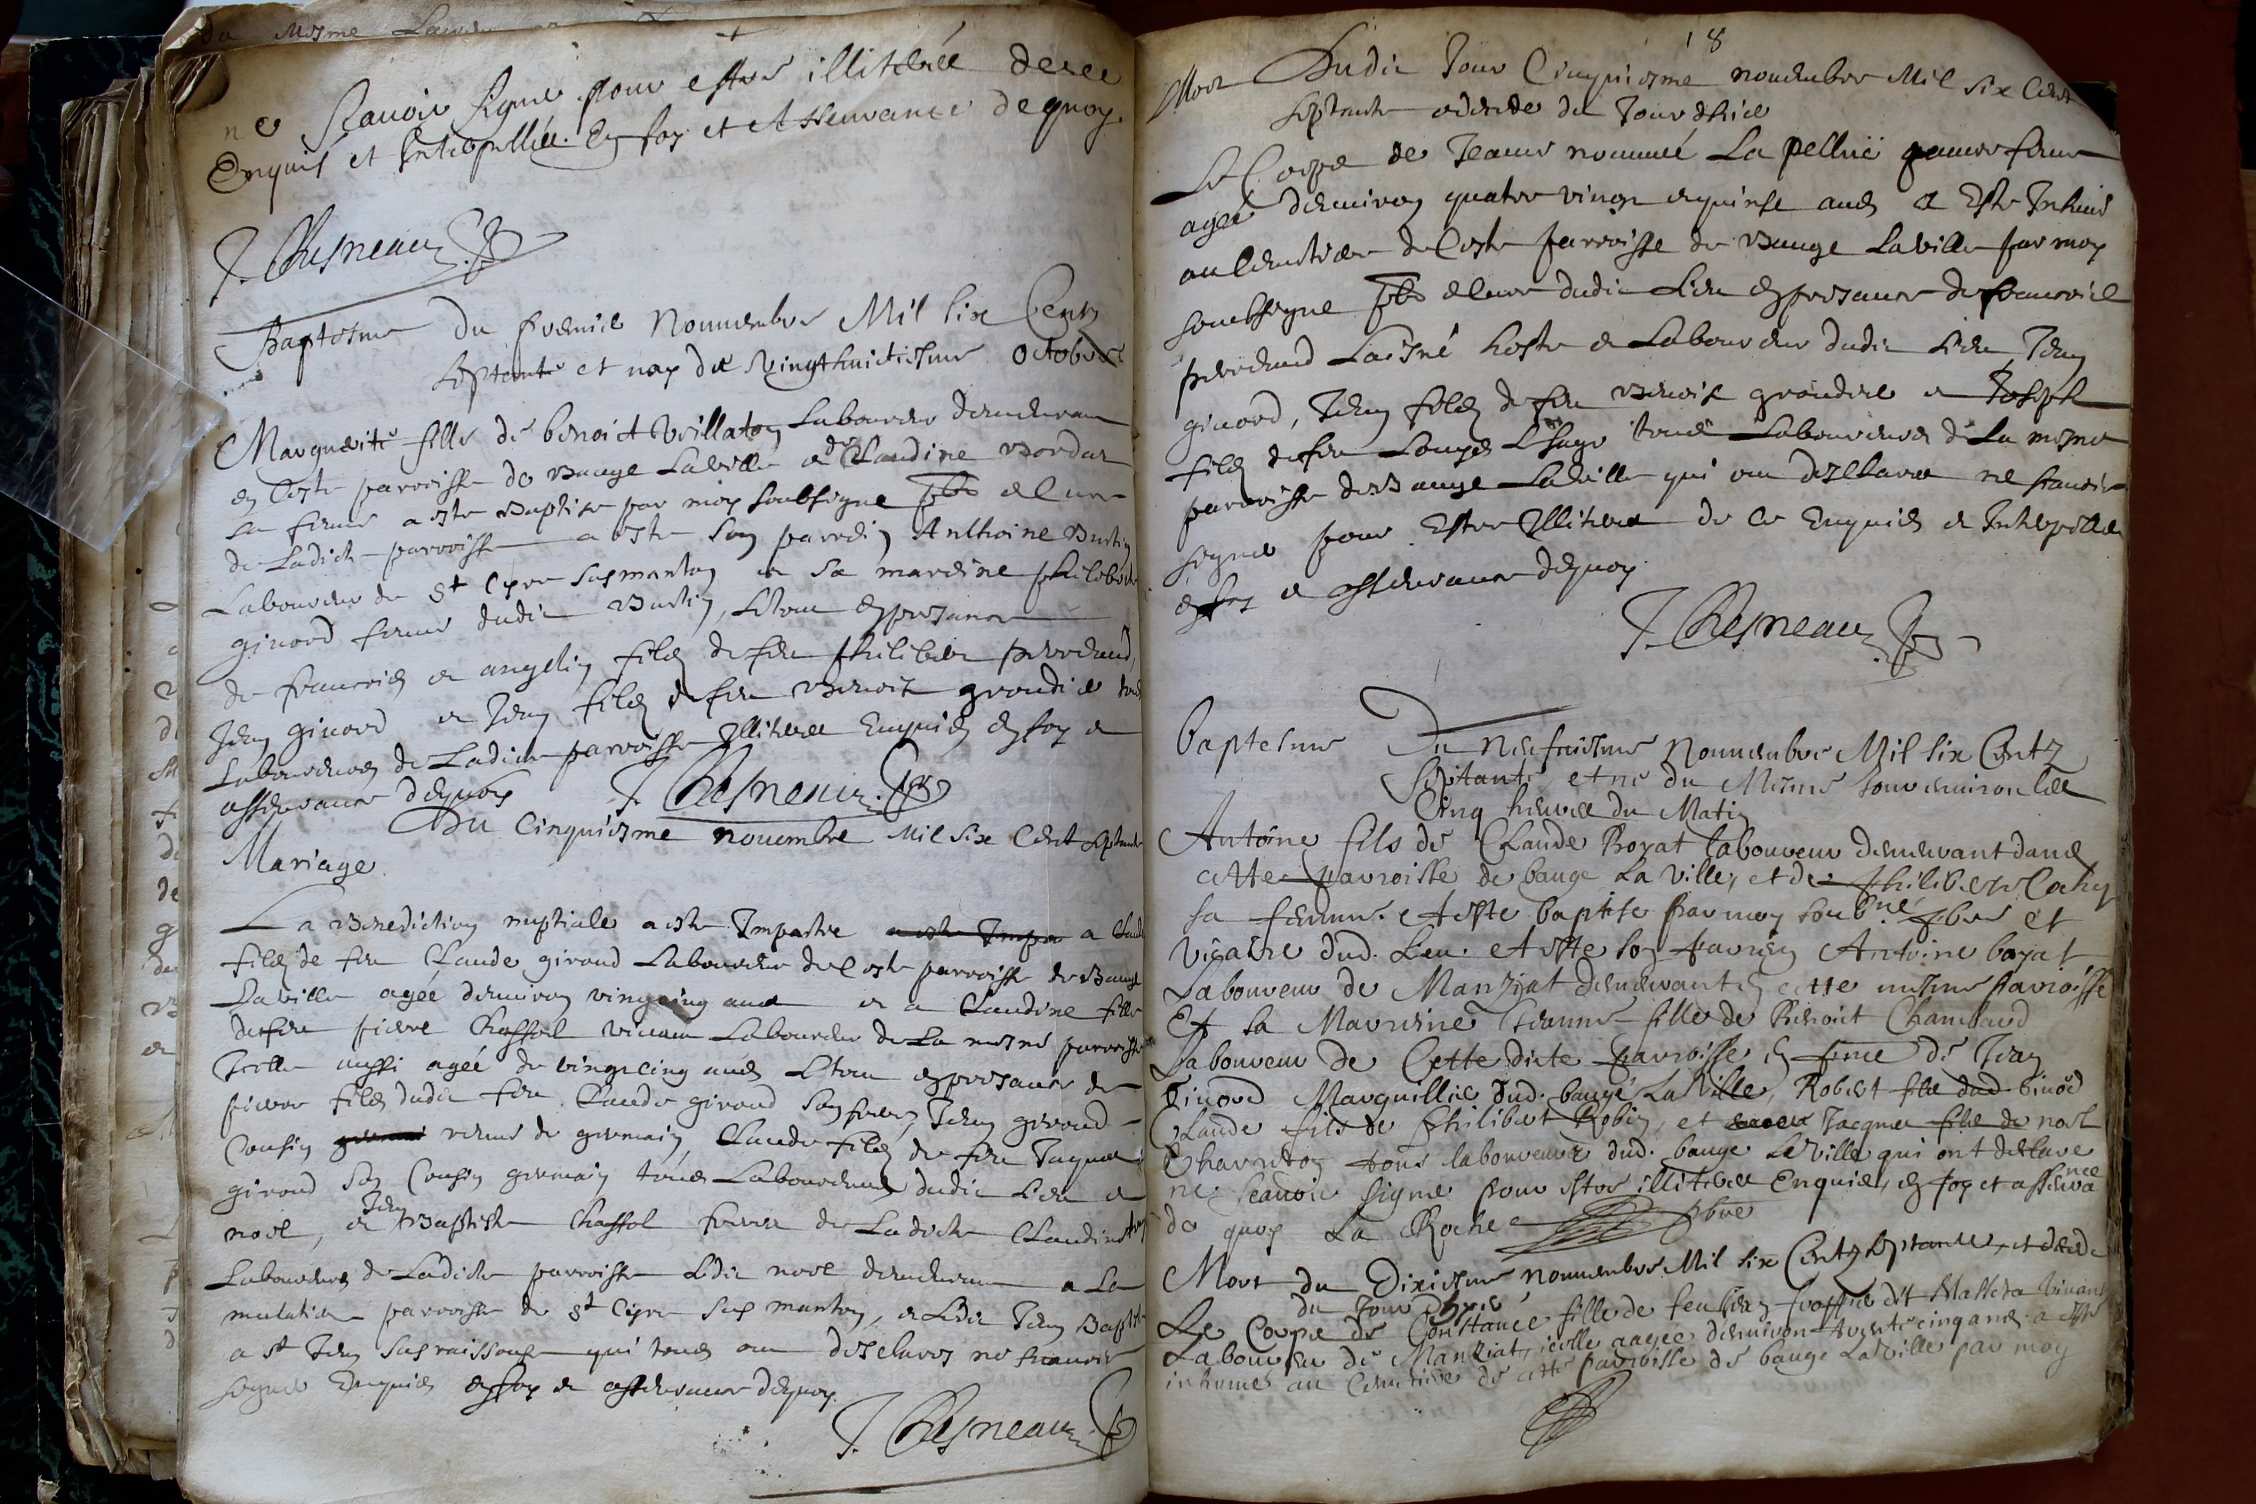 ne scavoir signer pour estre illiterée de ce
Enquis et Interpellée. En foy et Asseurance de quoy
J. Chesneau
Baptesme Du premie Nouuembre Mil six Centz
septante et nay du vingt huictiesme Octobre
Marguerite fille de benoict Veillaton Laboureur demeurant
en Ceste parroisse de Bauge La Ville et de Claudine Bordat
sa feme a este Baptise par moy soubsigne pbre et Cure
de Ladicte parroisse a este son parrein Anthoine Burtin
Laboureur de St Cyre sus manton et sa mareine philiberte
girord feme dudic Burtin, Letout en presance
de francois et angelin filz de feu philibert perreaud,
Jean girord et Jean filz de feu Benoist grondie tous
Laboureurs de Ladicte parroisse Illiteree Enquis en foy et
asseurance dequoy J. Chesneau
Du Cinquiesme nouembre Mil Six Cent septante
Mariage.
La Benediction nuptiale a este Impartie a este Impar a Claude
filz de feu Claude giroud Laboureur de Ceste parroisse de Bauge
La Ville agée denuiron vingt cinq ans et a Claudine fille
de feu pierre Chassol viuant Laboureur de La mesme parroisse
Icelle aussi agée de vingt cinq ans Letout en presance de
pierre filz dudic feu Claude giroud son frere, Jean giroud
Cousin remué de germain, Claude filz de feu Jaques
giroud son Cousin germain tous Laboureurs dudic Lieu et
noel, et Jean Baptiste Chassol freres de Ladicte Claudine
Laboureurs de Ladicte parroisse Ledic noel demeurant a La
mulatiere parroisse de St Cyre sus manton, et Ledic Jean Baptiste
a St Jean sus raissouse qui tous ont desclarez ne scauoir
signer Enquis en foy et asseurance dequoy.
J. Chesneau
18
Mort Dudic Jour Cinquiesme nouembre Mil six Cent
septante et decede du Jour dhier
Le Corps de Jeane nommée La pellue pauure feme
agée denuiron quatre vingt et quinse ans a Este Inhumé
au Cemetiere de Ceste parroisse de Bauge La ville par moy
soubsigne pbre et Cure dudic Lieu en presance de francois
perreaud Laisné hoste et Laboureur dudic Lieu, Jean
girord, Jean filz de feu Benoist grondie et Joseph
filz de feu Louys Lsage tous Laboureurs de La mesme
parroisse de Bauge La Ville qui ont desclare ne scauoir
signer pour Estre Illiteree de ce Enquis et Interpellee
en foy et asseurance dequoy.
J. Chesneau
baptesme Du neufuiesme Nouuembre Mil six Centz
septante et né du Mesme Jour enuiron les
Cinq heures du Matin
Antoine fils de Claude Boyat laboureur demeurant dans
cette parroisse de bauge La Ville, et de philiberte
sa femme. A este baptise par moy soubsné pbre et
vicaire dud. Lieu. et este son parrein Antoine boyat
Laboureur de Manziat demeurant en cette mesme parroisse
Et sa Marreine Jeanne fille de Benoict Chambaud
Laboureur de Cette dicte parroisse En pnce de Jean
Girord Marguillie dud. baugé La Ville, Robert
Claude fils de Philibert Robin, et Jacques fils de noel
Charreton tous laboureurs dud. bauge La Ville qui ont desclare
ne Scauoir signer pour estre illiteree Enquis, en foy et asseurance
de quoy La Roche pbre
Mort du Dixiesme Nouuembre Mil six Centz septante, et decede
du Jour dhyer
Le Corps de Constance fille de feu Jean dit viuant
Laboureur de Manziat, icelle aagée denuiron trente cinq ans a esté
inhumé au Cemetiere de cette parroisse de bauge La Ville par moy